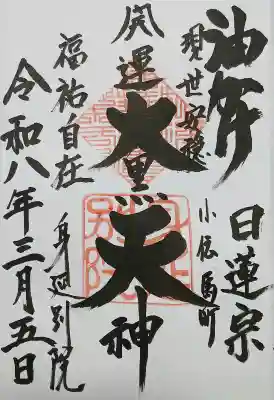 油
日蓮宗
現世安穏
小伝馬町
開運大黒天神
福祐自在
身延別院
令和八年三月五日